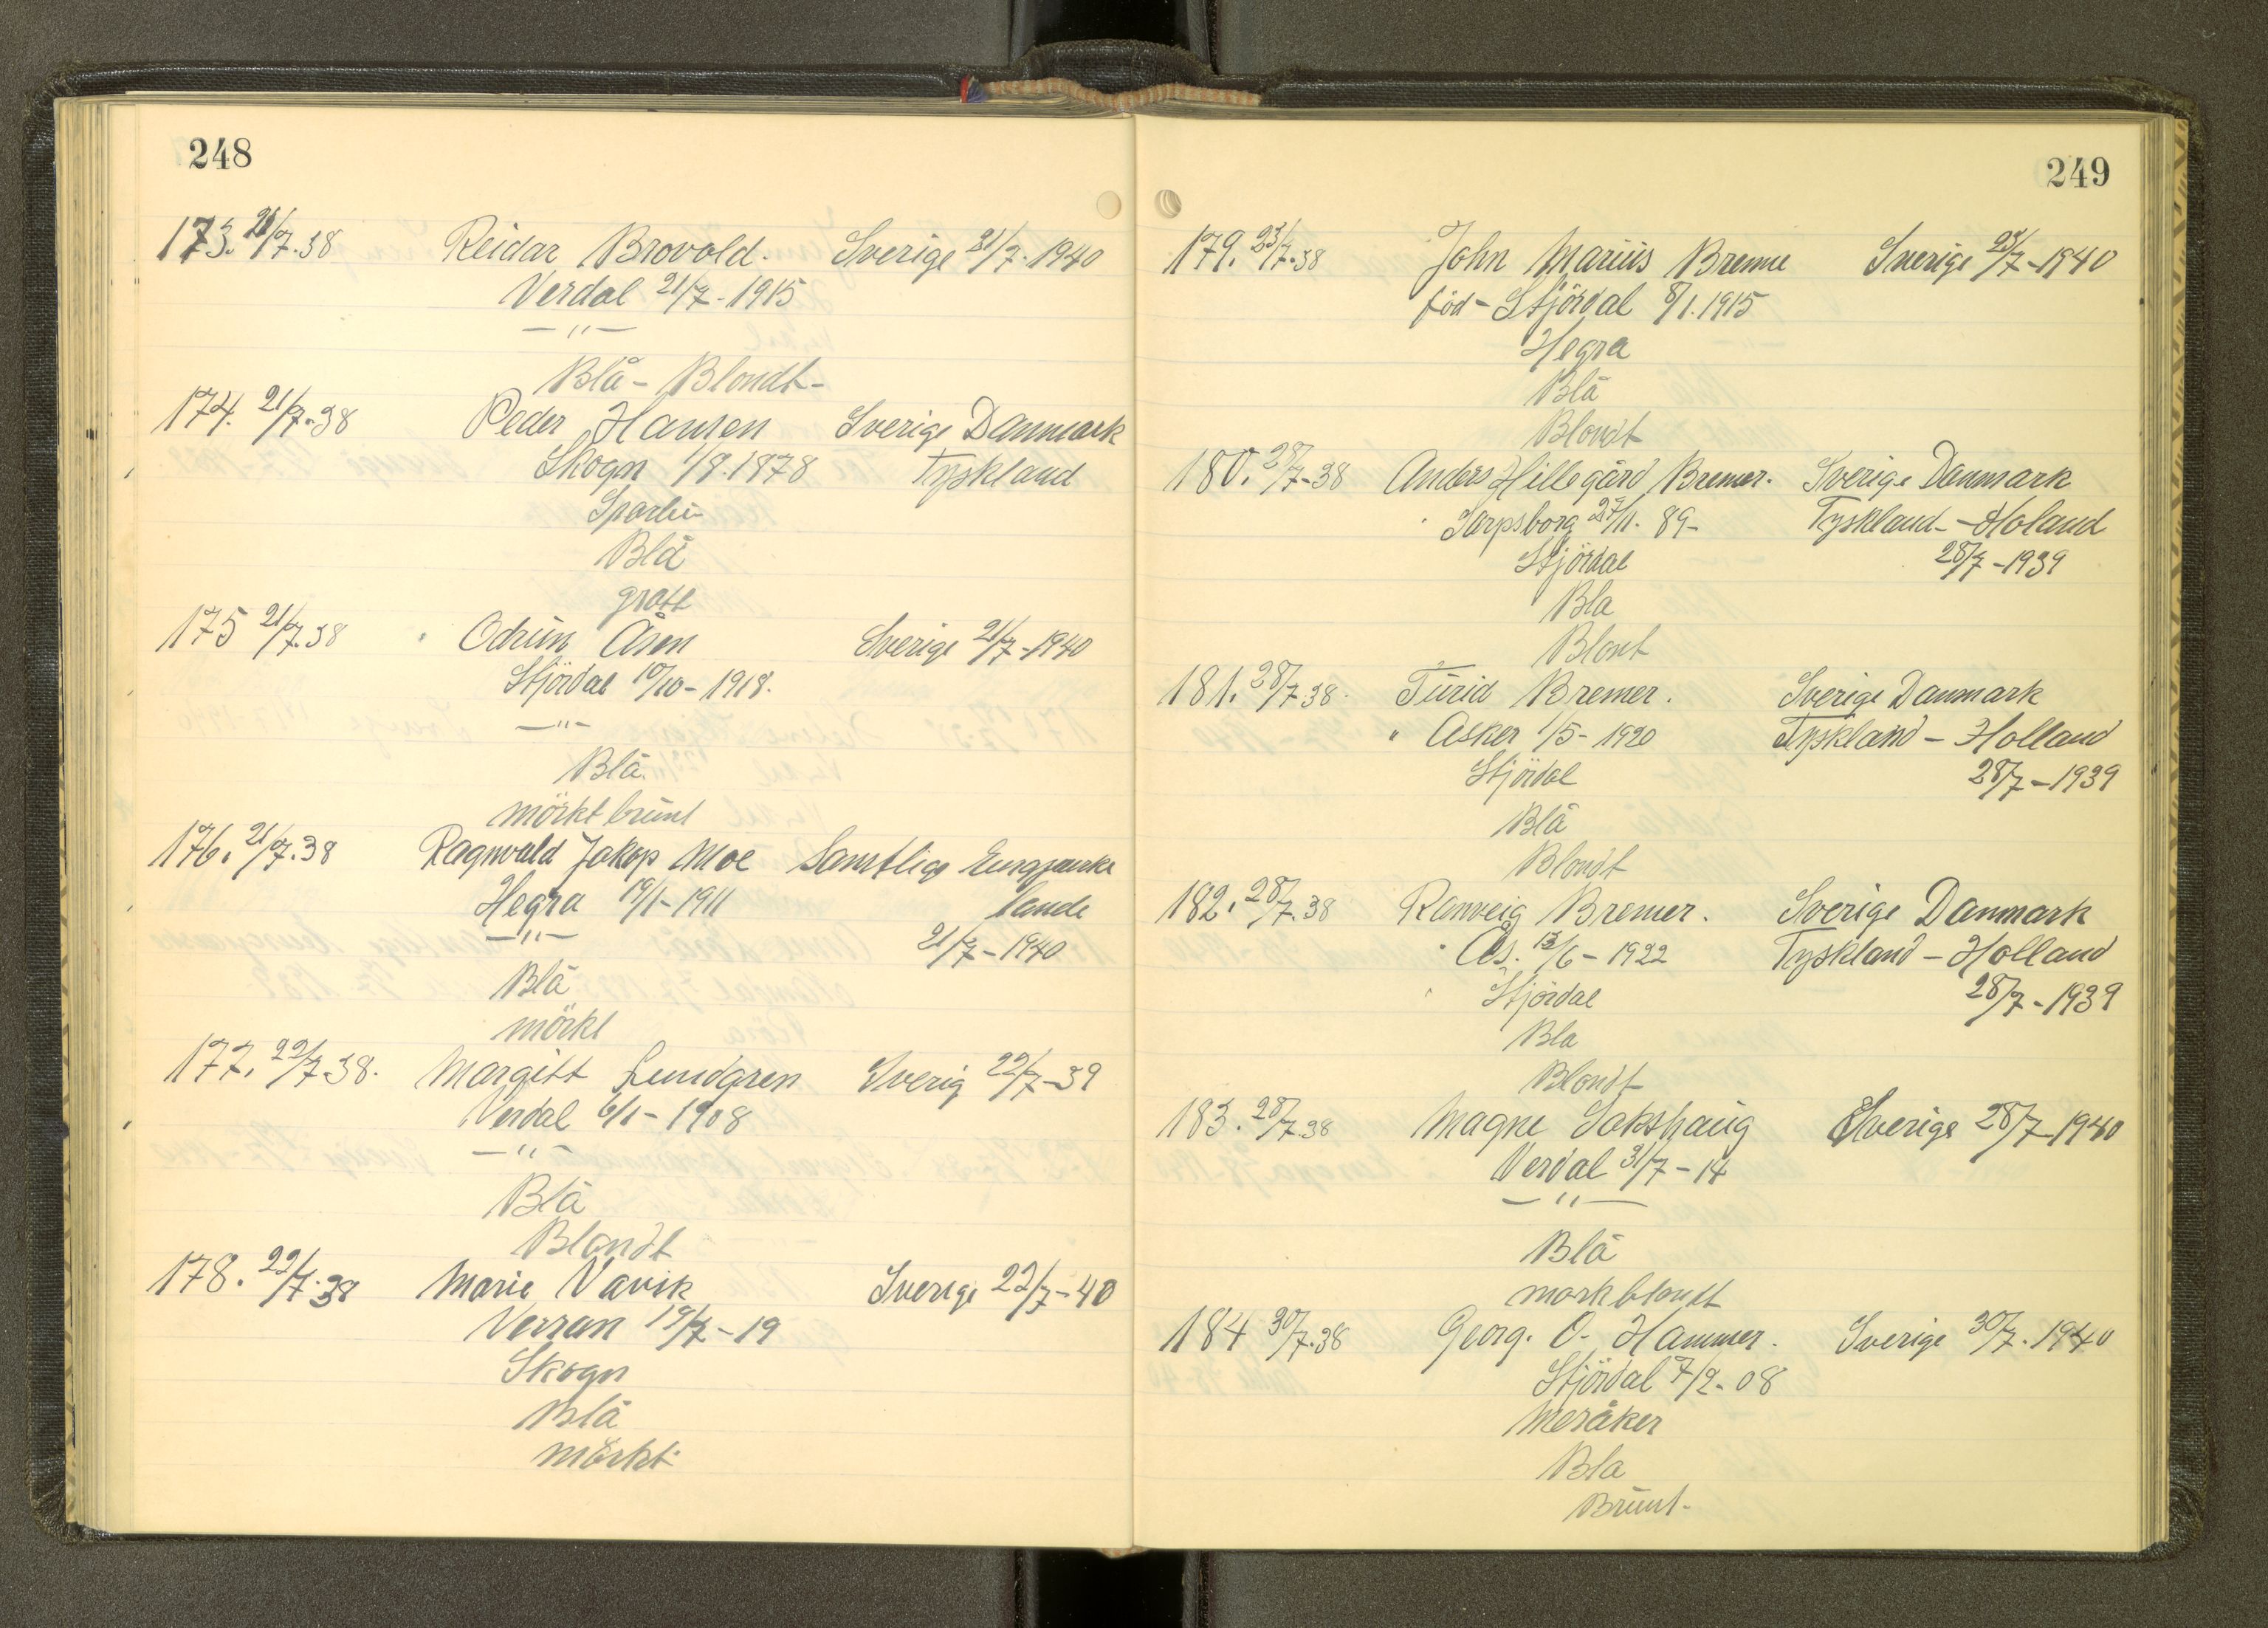 248
173. 21/7.38 Reidar Brovold. Sverige 21/7.1940
Verdal 21/7-1915
—"—
Blå - Blondt-
174. 21/7.38 Peder Hansen Sverige Danmark
Skogn 1/8.1878 Tyskland
Sparbu
Blå
grått
175 21/7.38 Odrun Åsen Sverige 21/7-1940
Stjördal 10/10-1918.
—"—
Blå.
mörkt brunt
176. 21/7.38 Ragnvald Jakop Moe Samtlige Europeiske
Hegra 19/1-1911 lande
—"— 21/7-1940
Blå
mörkt
177. 22/7.38. Margitt Lundgren Sverig 22/7-39
Verdal 6/1-1908
—"—
Blå
Blondt
178. 22/7.38 Marie Vavik Sverige 22/7-40
Verran 19/7-19
Skogn
Blå
mörkt
249
179. 23/7.38 John Marius Brenne Sverige 23/7-1940
föd- Stjördal 8/1.1915
Hegra
Blå
Blondt
180. 28/7-38 Anders Hillegård Bremer. Sverige Danmark
Sarpsborg 27/11. 89- Tyskland - Holand
Stjördal 28/7-1939
Bla
Blont
181. 28/7.38. Turid Bremer. Sverige Danmark
" Asker 1/5-1920 Tyskland - Holland
Stjördal 28/7-1939
Blå
Blondt
182. 28/7.38 Ranveig Bremer. Sverige Danmark
Ås. 13/6-1922 Tyskland - Holland
Stjördal 28/7-1939
Bla
Blondt
183. 28/7.38 Magne Sakshaug Sverige 28/7-1940
Verdal 31/7-14
—"—
Blå
mörk blondt
184 30/7.38 Georg. O. Hammer. Sverige 30/7.1940
Stjördal 7/2-08
Meråker
Bla
Brunt-